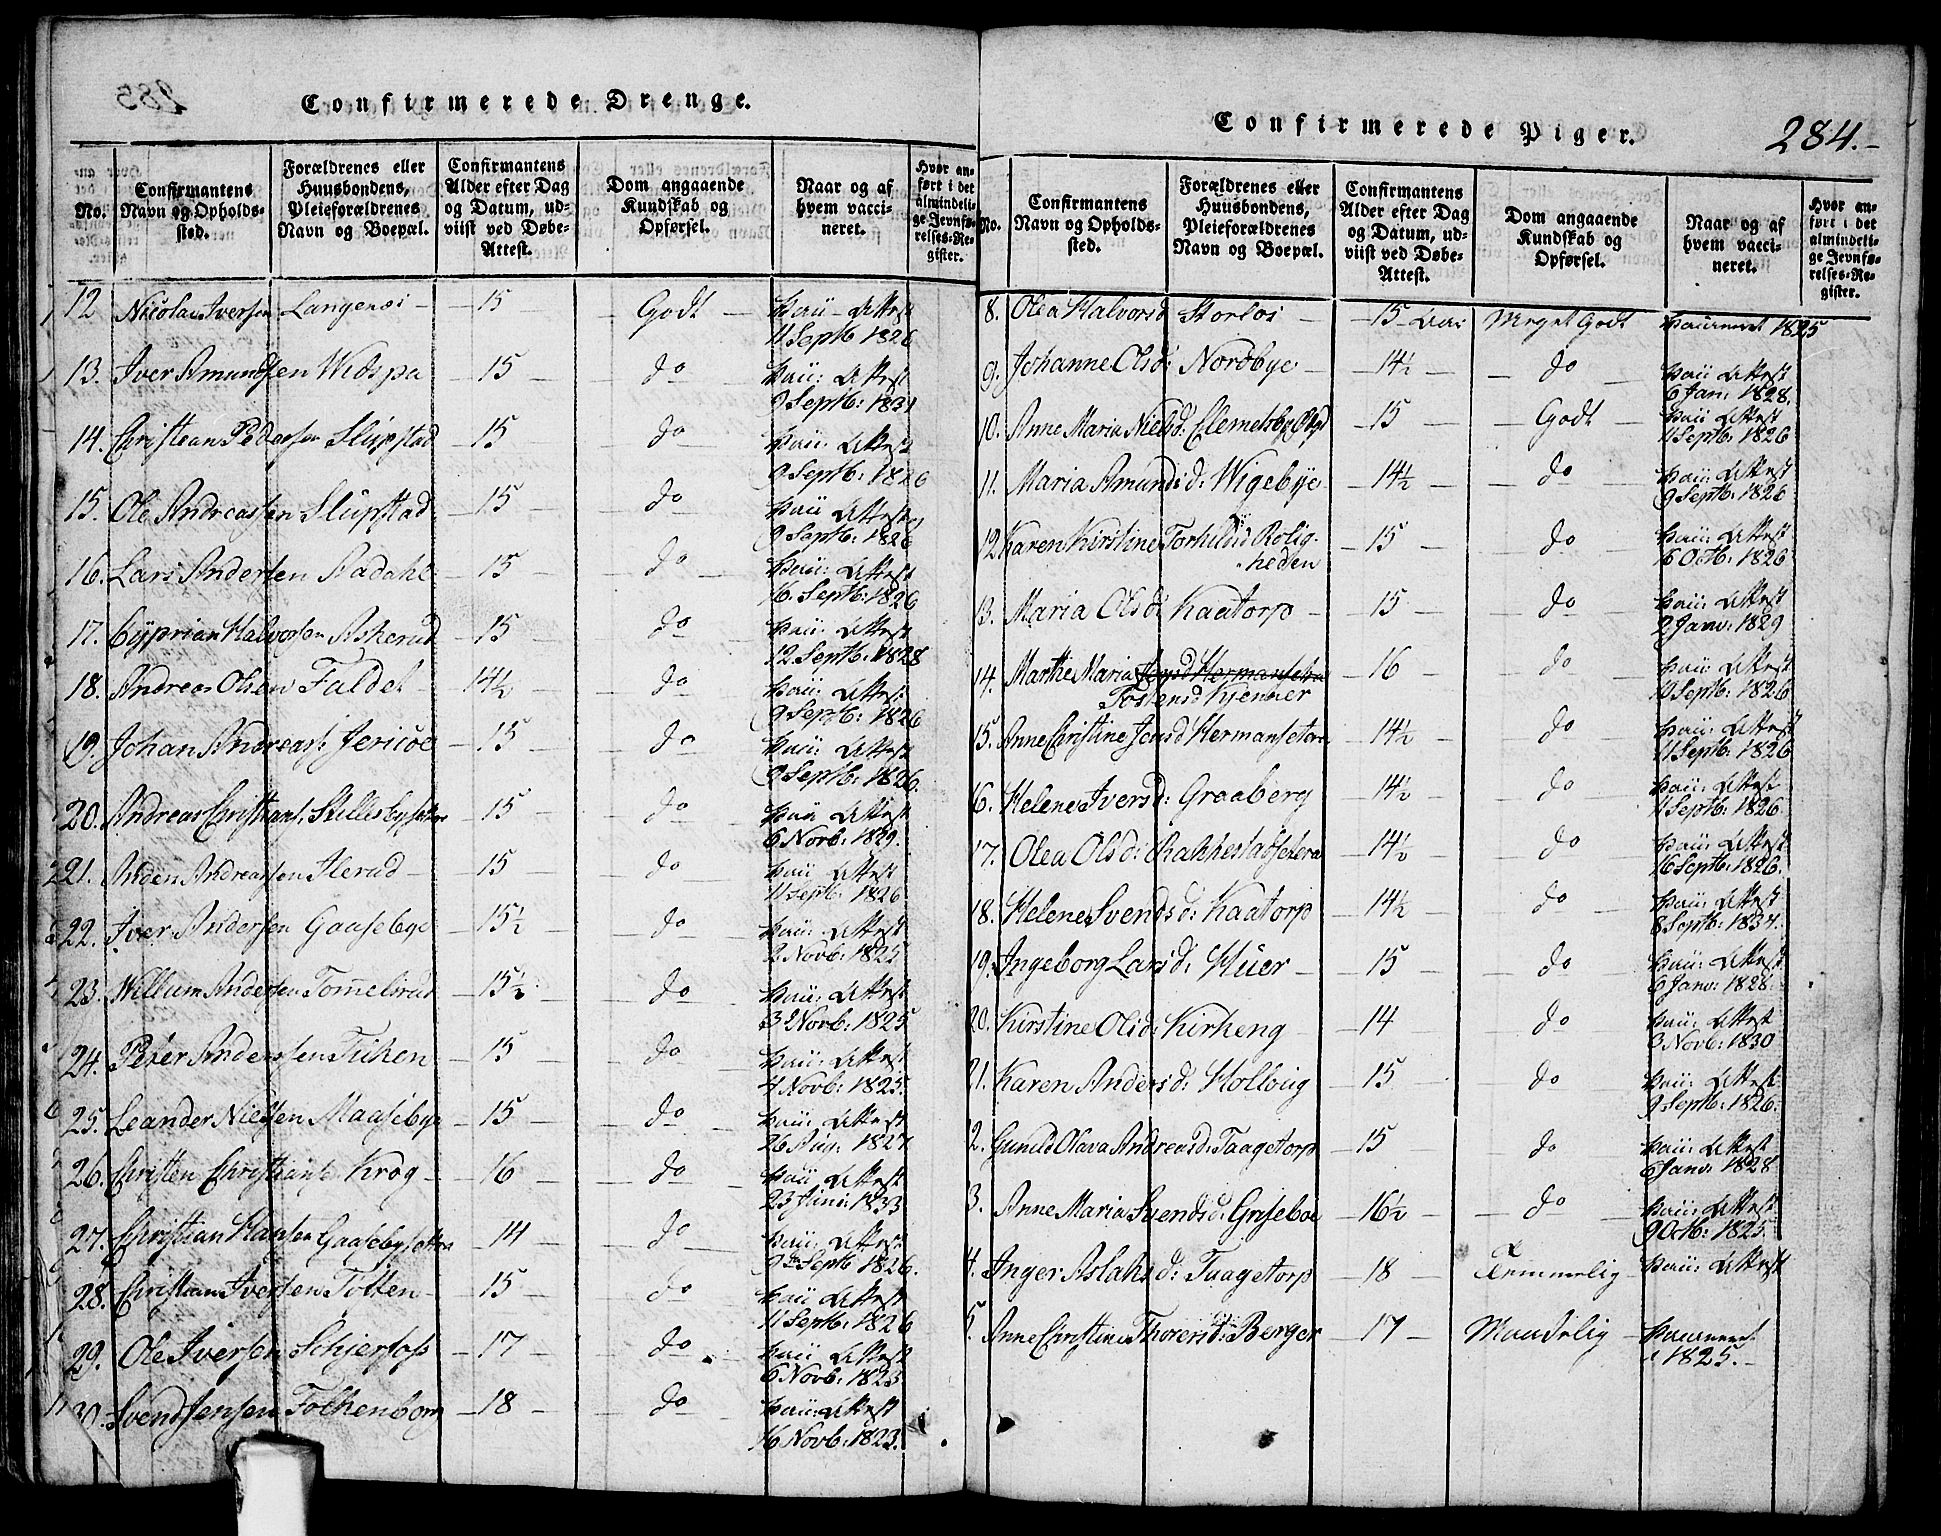 Confirmerede Drenge.
No.
Confirmantens Navn og Opholds-sted.
Forældrenes eller Huusbondens, Pleieforældrenes Navn og Boepæl.
Confirmantens Alder efter Dag og Datum, ud-viist ved Døbe-Attest.
Dom angaaende Kundskab og Opførsel.
Naar og af hvem vacci-neret.
Hvor an-ført i det almindeli-ge Jevnfø-relses-Re-gister.
12 Nicolai Iversen Langenæs 15 Godt Vac: Attest 11 Septb 1826
13. Iver Amundsen Widspa 15 do Vac: Attest 9 Septb: 1831
14. Christian Pedersen Slupstad 15 do Vac: Attest 9 Septb: 1826
15. Ole Andreassen Slupstad 15 do Vac: Attest 9 Septb: 1826
16. Lars Andersen Fladahl 15 do Vac: Attest 16. Septb: 1826
17. Cyprian Halvorsen Askerud 15 do Vac: Attest 12 Septb: 1828
18. Andreas Olsen Faldet 14½ do Vac: Attest 9 Septb: 1826
19. Johan Andreass: Jericoe 15 do Vac: Attest 9 Septb: 1826.
20. Andreas Christians: Stillesbysæter 15 do Vac Attest 6 Novb: 1829.
21. Anden Andreassen Ilerud 15 do Vac: Attest 11 Septb: 1826
22. Iver Andersen Gaasebye 15½ do Vac: Attest 2 Novb: 1825
23. Willum Andersen Tommelsrud 15½ do Vac: Attest 3 Novb: 1825
24. Peter Andersen Tuken 15 do Vac: Attest 4 Novb: 1825.
25. Leander Nielsen Maasebye 15 do Vac: Attest 26 Aug: 1827
26. Christen Christians: Krog 16 do Vac: Attest 23 Juni: 1833
27. Christian Hansen Gaasebysættra 14 do Vac: Attest 9 Septb 1826.
28. Christian Iversen Toften 15 do Vac Attest 11 Septb: 1826
29. Ole Iversen Schiersoss 17 do Vac: Attest 6 Novb: 1823
30. Svend Jensen Folkenborg 18 do Vac: Attest 16 Novb: 1823.
Confirmerede Piger.
284.
No.
Confirmantens Navn og Opholds-sted.
Forældrenes eller Huusbondens, Pleieforældrenes Navn og Boepæl.
Confirmantens Alder efter Dag og Datum, ud-viist ved Døbe-Attest.
Dom angaaende Kundskab og Opførsel.
Naar og af hvem vacci-neret.
Hvor an-ført i det almindeli-ge Jevnfø-relses-Re-gister.
8. Olea Halvorsd Storløs 15 Aar Meget Godt Vaccineret 1825
9. Johanne Olsd: Nordbye 14½ do Vac: Attest 6 Jan: 1828.
10. Anne Maria Nielsd: Clemetsby 15 Godt Vac: Attest 11 Septb: 1826
11. Maria Amunds d: Wigebye 14½ do Vac: Attest 9 Septb: 1826
12 Karen Kirstine Torkildsd Rolig-heden 15 do Vac: Attest 6 Octb: 1826
13. Maria Olsd: Kaatorp 15 do Vac: Attest 2 Janv: 1829
14. Marthe Maria Jensd Hermansetra Tostensd Kjenner 16 do Vac: Attest 11 Septb: 1826
15. Anne Christine Jensd Hermansetra 14½ do Vac: Attest 11 Septb: 1826
16. Helene Ivers d: Graaberg 14½ do Vac: Attest 11 Septb: 1826.
17. Olea Ols d: Rakkestadsetera 14½ do Vac: Attest 16 Septb: 1826.
18. Helene Svends d: Kaatorp 14½ do Vac: Attest 8 Septb: 1834.
19. Ingeborg Lars d: Huer 15 do Vac: Attest 6 Janv: 1828.
20. Kirstine Ols d: Kirkeng 14 do Vac: Attest 3 Novb: 1830
21. Karen Anders d: Hollvig 15 do Vac: Attest 9 Septb: 1826.
2. Gunild Olava Andreasd: Taagetorp 15 do Vac: Attest 6 Janv: 1828
3. Anne Maria Svendsd: Griseboe 16½ do Vac: Attest 9 Octb: 1825.
4. Inger Aslaks d: Taagetorp 18 Temmelig Vac: Attest
5. Anne Christine Thorersd: Berger 17 Maadelig Vaccineret i 1825.